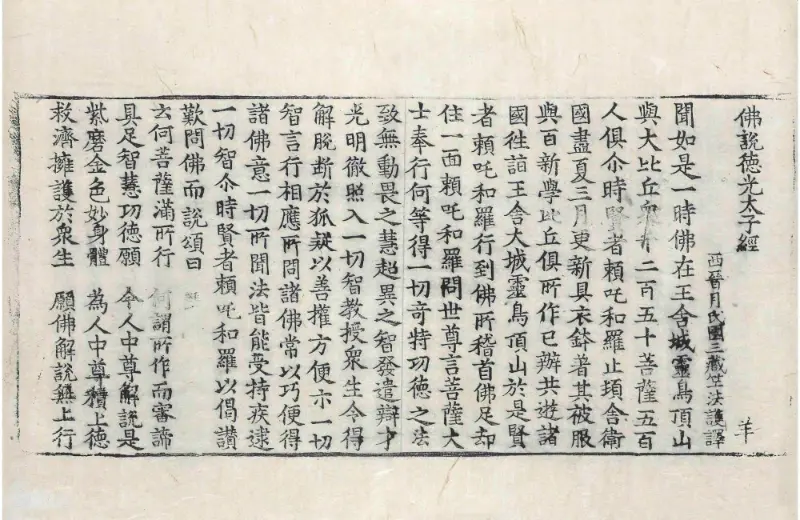 佛說德光太子經　羊
西晉月氏國三藏竺法護譯
聞如是一時佛在王舍城靈鳥頂山
與大比丘衆千二百五十菩薩五百
人俱尒時賢者頼吒和羅止頓舍衛
國盡夏三月更新具衣鉢著其被服
與百新學比丘俱所作已辦共遊諸
國徃詣王舍大城靈鳥頂山於是賢
者頼吒和羅行到佛所稽首佛足却
住一面頼吒和羅問世尊言菩薩大
士奉行何等得一切奇特功德之法
致無動畏之慧超異之智發遣辯才
光明徹照入一切智教授衆生令得
解脫斷於狐疑以善權方便示一切
智言行相應所問諸佛常以巧便得
諸佛意一切所聞法皆能受持疾逮
一切智尒時賢者頼吒和羅以偈讃
歎問佛而說頌曰
云何菩薩滿所行　何謂所作而審諦
具足智慧功德願　令人中尊解說是
紫磨金色妙身體　為人中尊積上德
救濟擁護於衆生　願佛解說無上行